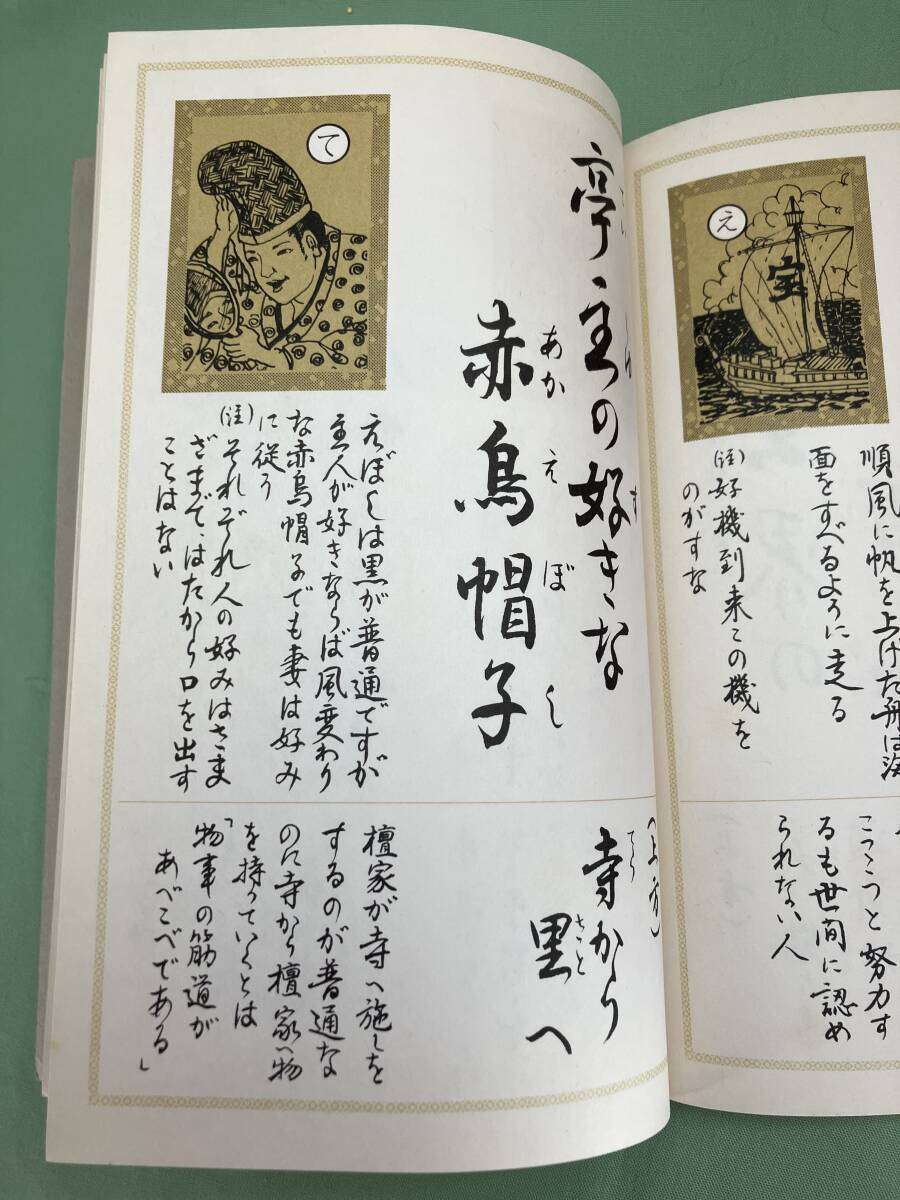 え
宝
順風に帆を上げた舟は海
面をすべるように走る
(注)好機到来この機を
のがすな
こつこつと努力す
るも世間に認め
られない人
て
亭主の好きな
す
赤烏帽子
あかえぼし
えぼしは黒が普通ですが
主人が好きならば風変わり
な赤烏帽子でも妻は好み
に従う
(注)それぞれ人の好みはさま
ざまで、はたから口を出す
ことはない
(上方)
寺から
てら
里へ
さと
檀家が寺へ施しを
するのが普通な
のに寺から檀家へ物
を持っていくとは
「物事の筋道が
あべこべである」